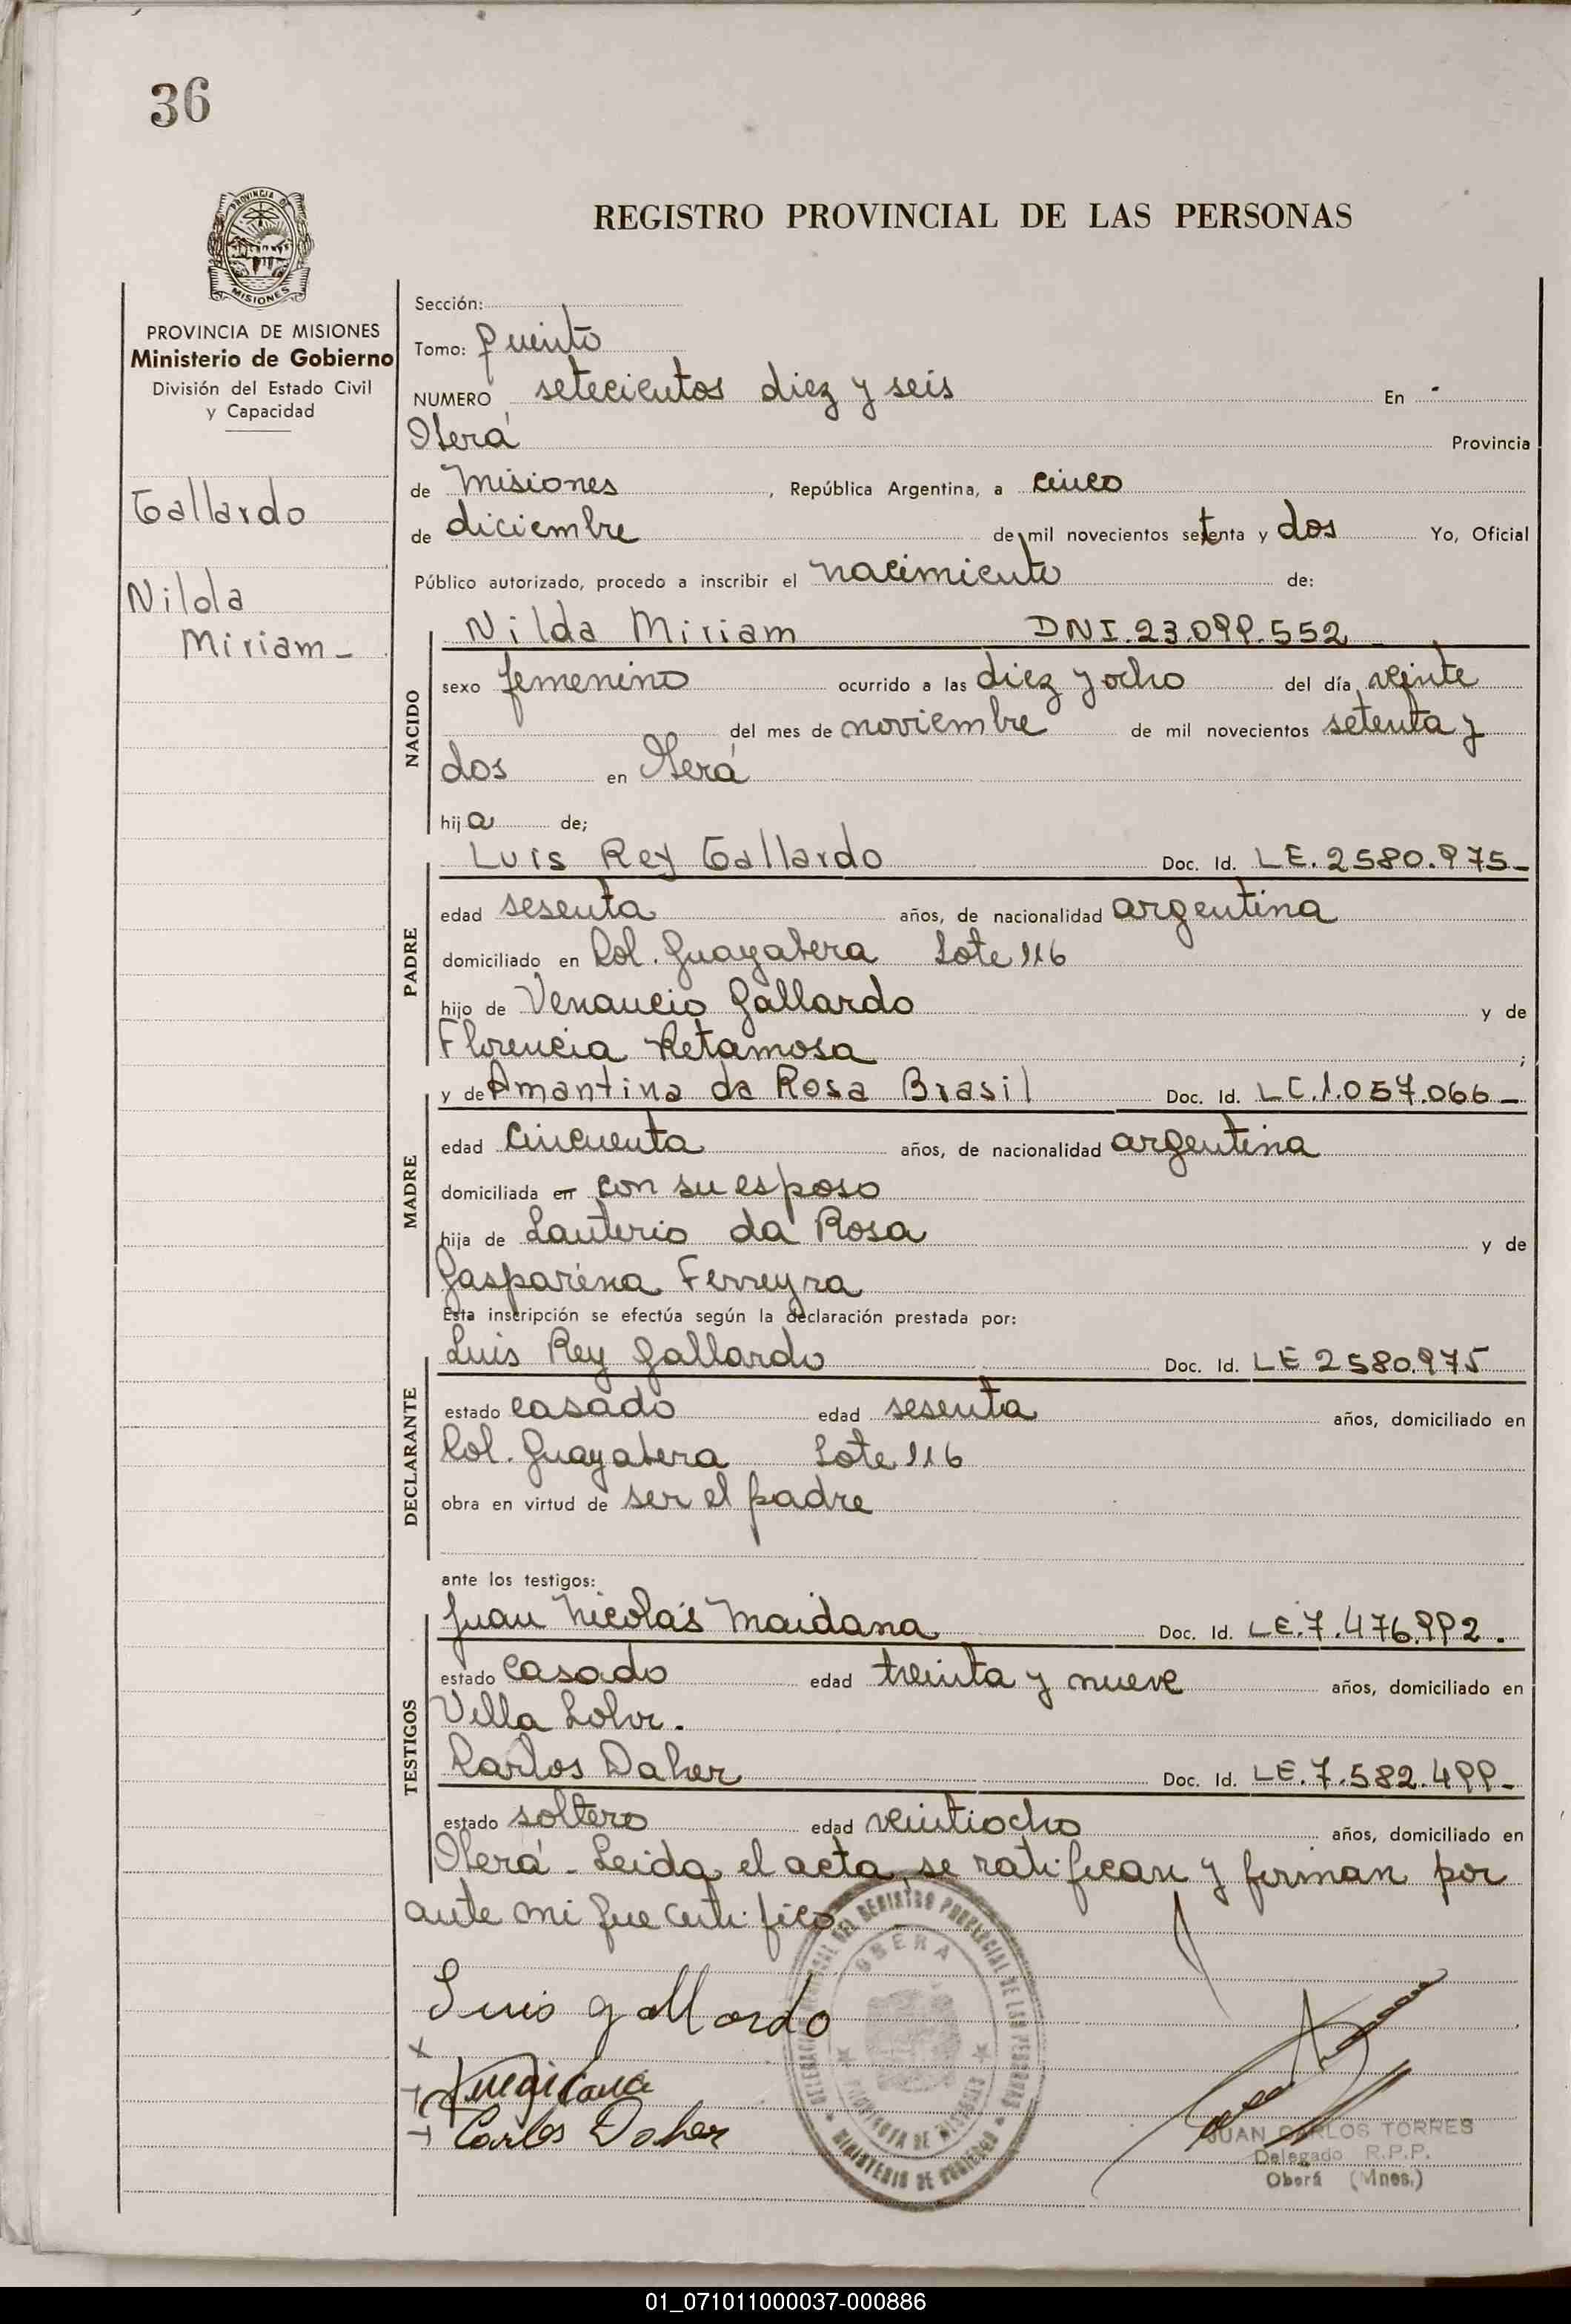 36
PROVINCIA DE
MISIONES
PROVINCIA DE MISIONES
Ministerio de Gobierno
División del Estado Civil
y Capacidad
Gallardo
Nilda
Miriam -
REGISTRO PROVINCIAL DE LAS PERSONAS
Sección:
Tomo: quinto
NUMERO setecientos diez y seis En
Oberá Provincia
de Misiones, República Argentina, a cinco
de diciembre de mil novecientos setenta y dos Yo, Oficial
Público autorizado, procedo a inscribir el nacimiento de:
NACIDO
Nilda Miriam DNI. 23.099.552
sexo femenino ocurrido a las diez y ocho del día veinte
del mes de noviembre de mil novecientos setenta y
dos en Oberá
hija de;
PADRE
Luis Rey Gallardo Doc. Id. LE. 2580.975-
edad sesenta años, de nacionalidad argentina
domiciliado en Col. Guayabera Lote 116
hijo de Venancio Gallardo y de
Florencia Retamosa ;
MADRE
y de Amantina da Rosa Brasil Doc. Id. LC.1.057.066-
edad cincuenta años, de nacionalidad argentina
domiciliada en con su esposo
hija de Lauterio da Rosa y de
Gasparina Ferreyra
Esta inscripción se efectúa según la declaración prestada por:
DECLARANTE
Luis Rey Gallardo Doc. Id. LE 2580.975
estado casado edad sesenta años, domiciliado en
Col. Guayabera Lote 116
obra en virtud de ser el padre
ante los testigos:
TESTIGOS
Juan Nicolás Maidana Doc. Id. LE.7.476.992.
estado casado edad treinta y nueve años, domiciliado en
Villa Lohr.
Carlos Daher Doc. Id. LE.7.582.499-
estado soltero edad veintiocho años, domiciliado en
Oberá - Leida el acta, se ratifican y firman por
ante mi que certifico
Luis gallardo
Carlos Daher
OBERA
PROVINCIA DE MISIONES
MINISTERIO DE GOBIERNO
JUAN CARLOS TORRES
Delegado R.P.P.
Oberá (Mnes.)
01_071011000037-000886